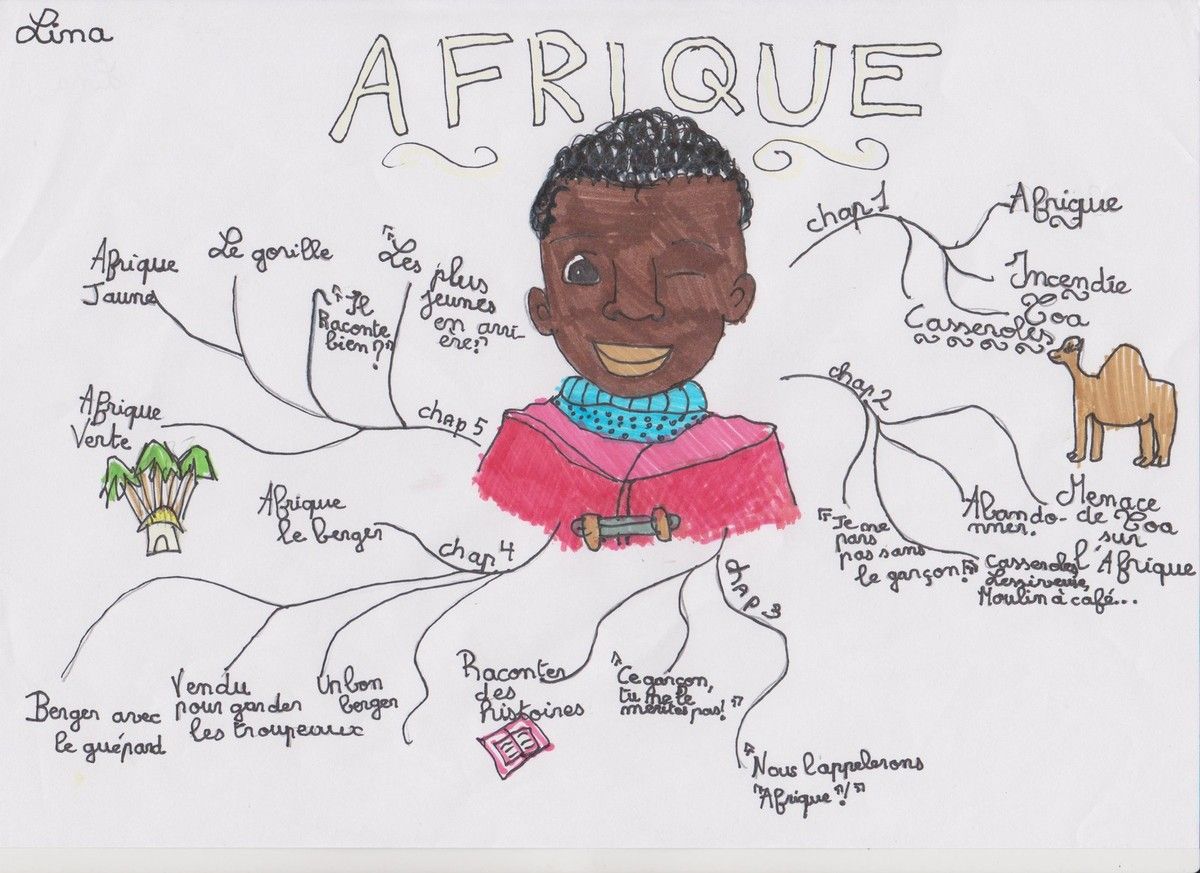 Lina
AFRIQUE
chap 1
Afrique
Incendie
Toa
Casseroles
chap 2
Menace
de Toa
sur
l'Afrique
Abando-
nner.
Casseroles
Lessiveuse
Moulin à café...
"Je ne
pars
pas sans
le garçon!"
CHAP 3
"Nous l'appelerons
"Afrique"!"
"Ce garçon,
tu ne le
mérites pas!"
Raconter
des
histoires
chap 4
Afrique
le berger
Un bon
berger
Vendu
pour garder
les troupeaux
Berger avec
le guépard
chap 5
"Les plus
jeunes
en arri-
ère!"
"Il
Raconte
bien?"
Le gorille
Afrique
Jaune
Afrique
Verte